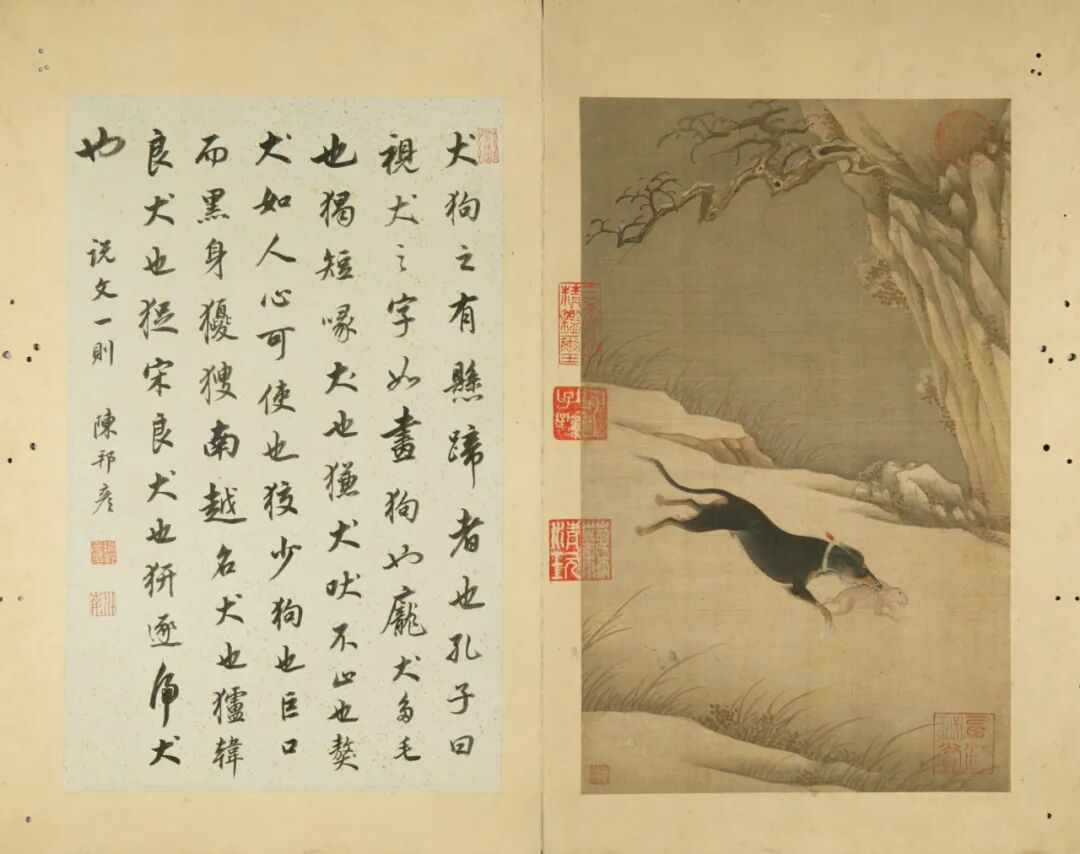 犬狗之有懸蹄者也孔子曰
視犬之字如畫狗也龐犬多毛
也猲短喙犬也㺌犬吠不止也獒
犬如人心可使也狡少狗也巨口
而黑身獿獀南越名犬也獹韓
良犬也宋良犬也逐虎犬
也
說文一則 陳邦彥
三希堂精鑑璽
宜子孫